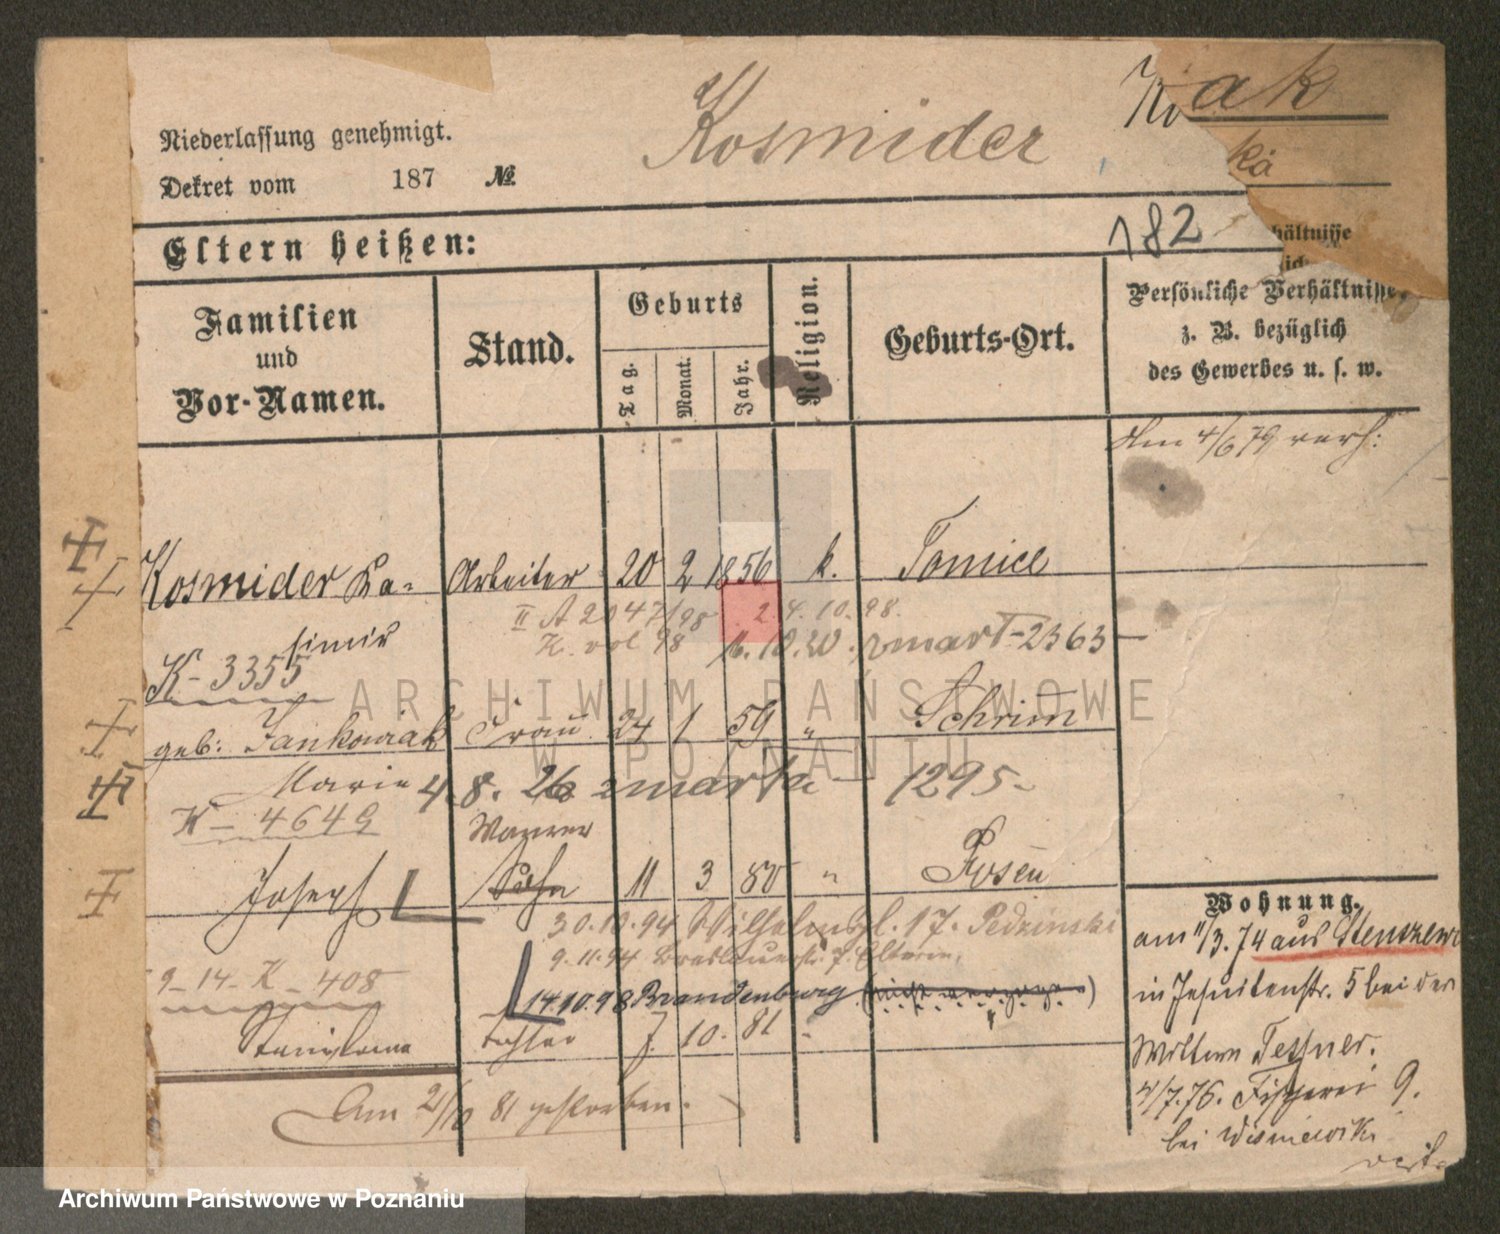 Kosmider
ak
ka
Niederlassung genehmigt.
Dekret vom 187 №
182
Eltern heißen:
Familien und Vor-Namen.
Stand.
Geburts
Tag.
Monat.
Jahr.
Religion.
Geburts-Ort.
hältnisse
Persönliche Verhältnisse,
z. B. bezüglich
des Gewerbes u. s. w.
Am 4/6 79 verh:
Kosmider Ka- Arbeiter 20 2 1856 k. Tomice
simir
II A 2047/98 24.10.98.
K-3355
zmarł-2363-
geb: Jankowiak Frau 24 1 59 " Schrim
Marie 4.8.26 zmarła - 1295-
K-4649
Maurer
Joseph Sohn 11 3 80 " Posen
30.10.94 Wilhelmspl. 17. Pedzinski
9.11.94 Breslauerstr. 7. Eltern.
9-14-K-408
14.10.98 Brandenburg
Stanislawa tochter 7. 10. 81 -
Am 21/10 81 gestorben.
Wohnung.
am 11/3.74 aus Stenszewo
in Jesuitenstr. 5 bei der
Wittwe Tessner.
4/7.76. Fischerei 9.
bei Wisniewski
ARCHIWUM PAŃSTWOWE
W POZNANIU
Archiwum Państwowe w Poznaniu